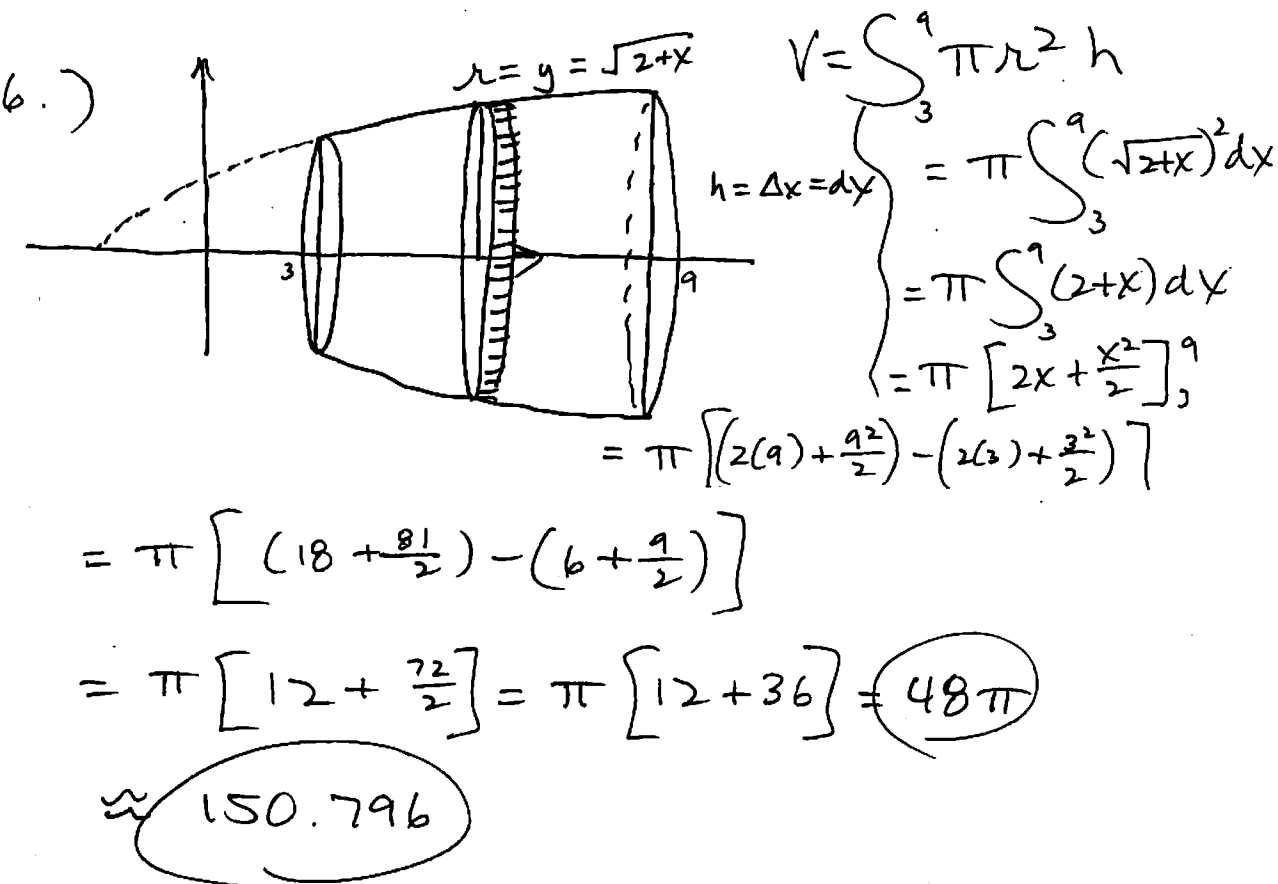 6.)
r = y = √(2+x)
V = ∫₃⁹ πr² h
h = Δx = dx
= π ∫₃⁹ (√(2+x))² dx
3
9
= π ∫₃⁹ (2+x) dx
= π [2x + x²/2]₃⁹
= π [(2(9) + 9²/2) - (2(3) + 3²/2)]
= π [(18 + 81/2) - (6 + 9/2)]
= π [12 + 72/2] = π [12 + 36] = 48π
≈ 150.796